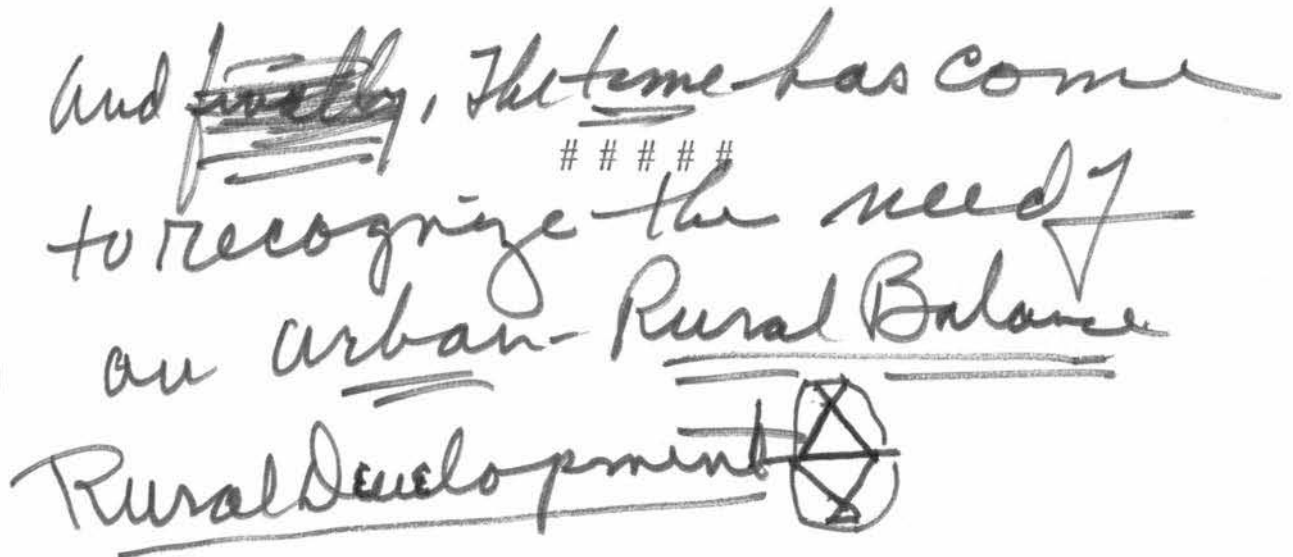 and finally, The time has come
# # # # #
to recognize the need of
an urban - Rural Balance
Rural Development